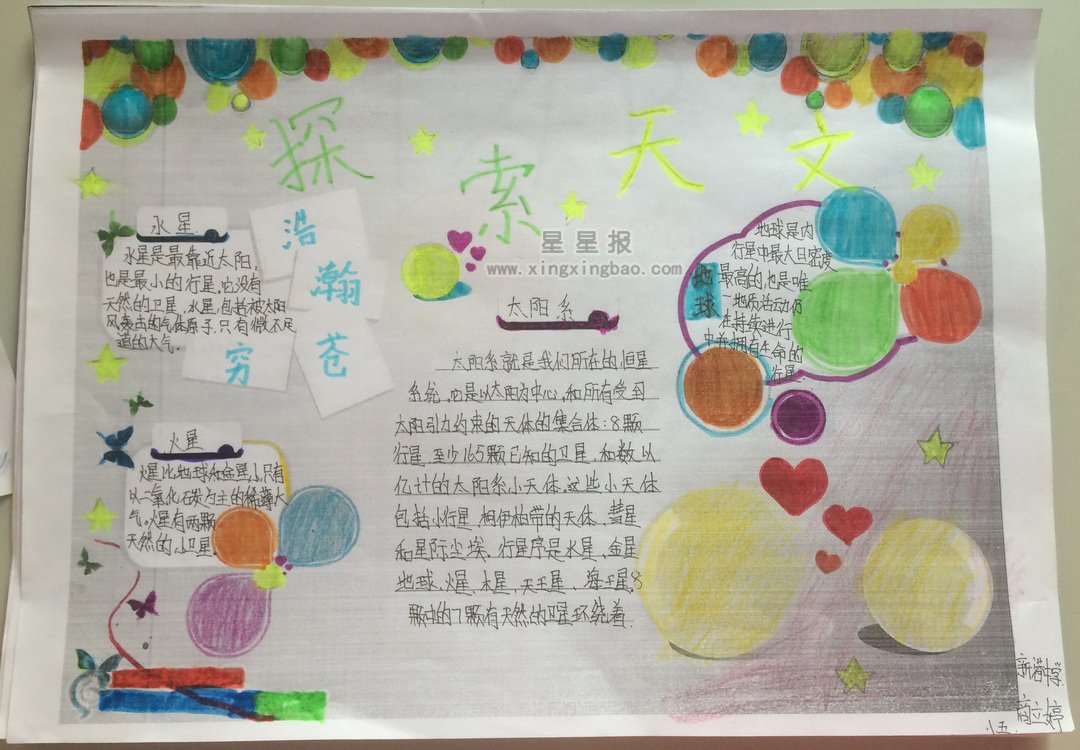 探索天文
星星报
www.xingxingbao.com
浩
瀚
苍
穷
水星
水星是最靠近太阳,
也是最小的行星,它没有
天然的卫星,水星,包括被太阳
风袭击的气体原子,只有微不足
道的大气.
火星
火星比地球和金星小,只有
以二氧化碳为主的稀薄大
气,火星有两颗
天然的小卫星.
太阳系
太阳系就是我们所在的恒星
系统,它是以太阳为中心,和所有受到
太阳引力约束的天体的集合体:8颗
行星,至少165颗已知的卫星,和数以
亿计的太阳系小天体.这些小天体
包括小行星,柯伊柏带的天体、彗星
和星际尘埃.行星序是水星、金星
地球、火星、木星、天王星、海王星,8
颗中的7颗有天然的卫星环绕着.
地球
地球是内
行星中最大且密度
最高的,也是唯
地质活动仍
在持续进行
中并拥有生命的
行星.
中学
小五